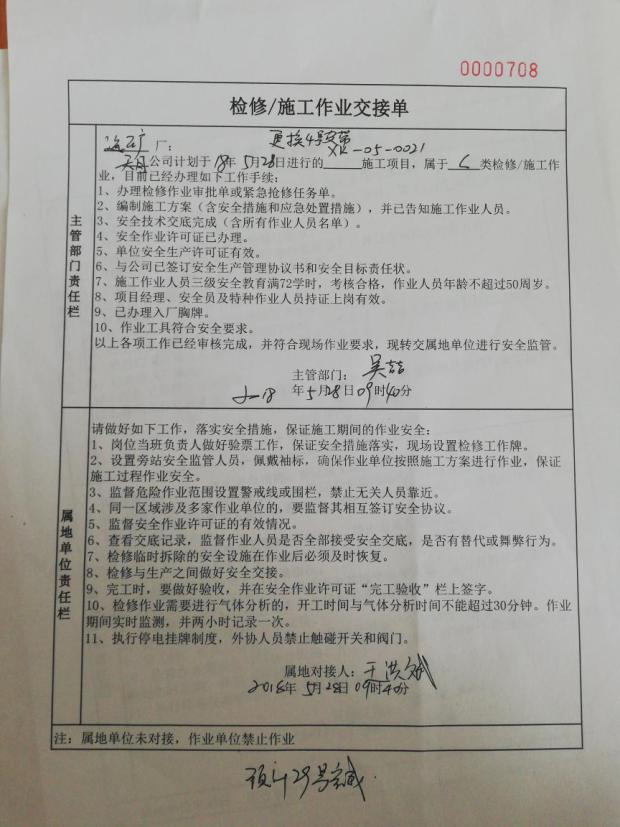 0000708
检修/施工作业交接单
厂：更换4号皮带
XK-05-0021
公司计划于18年5月28日进行的 施工项目，属于C类检修/施工作
业，目前已经办理如下工作手续：
1、办理检修作业审批单或紧急抢修任务单。
2、编制施工方案（含安全措施和应急处置措施），并已告知施工作业人员。
3、安全技术交底完成（含所有作业人员名单）。
4、安全作业许可证已办理。
5、单位安全生产许可证有效。
6、与公司已签订安全生产管理协议书和安全目标责任状。
7、施工作业人员三级安全教育满72学时，考核合格，作业人员年龄不超过50周岁。
8、项目经理、安全员及特种作业人员持证上岗有效。
9、已办理入厂胸牌。
10、作业工具符合安全要求。
以上各项工作已经审核完成，并符合现场作业要求，现转交属地单位进行安全监管。
主管部门：吴喆
2018年5月28日09时40分
主管部门责任栏
请做好如下工作，落实安全措施，保证施工期间的作业安全：
1、岗位当班负责人做好验票工作，保证安全措施落实，现场设置检修工作牌。
2、设置旁站安全监管人员，佩戴袖标，确保作业单位按照施工方案进行作业，保证
施工过程作业安全。
3、监督危险作业范围设置警戒线或围栏，禁止无关人员靠近。
4、同一区域涉及多家作业单位的，要监督其相互签订安全协议。
5、监督安全作业许可证的有效情况。
6、查看交底记录，监督作业人员是否全部接受安全交底，是否有替代或舞弊行为。
7、检修临时拆除的安全设施在作业后必须及时恢复。
8、检修与生产之间做好安全交接。
9、完工时，要做好验收，并在安全作业许可证“完工验收”栏上签字。
10、检修作业需要进行气体分析的，开工时间与气体分析时间不能超过30分钟。作业
期间实时监测，并两小时记录一次。
11、执行停电挂牌制度，外协人员禁止触碰开关和阀门。
属地对接人：于洪斌
2018年5月28日09时40分
属地单位责任栏
注：属地单位未对接，作业单位禁止作业
预计29号完成.